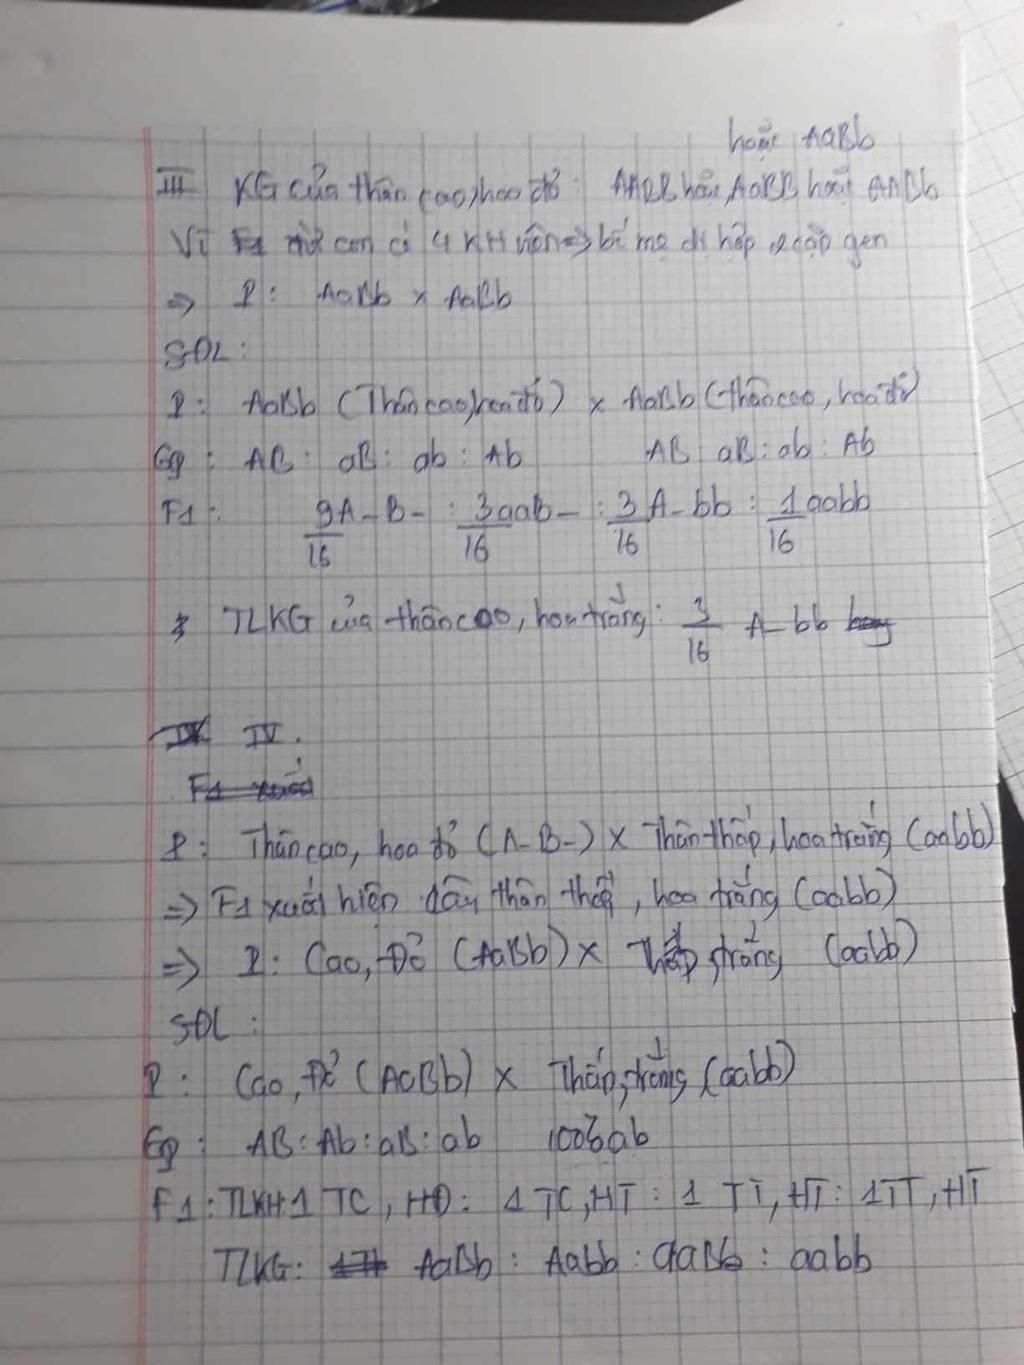 hoặc AaBb
III KG của thân cao, hoa đỏ: AABB hoặc AaBB hoặc AABb
Vì F1 đời con có 4 KH nên => bố mẹ dị hợp 2 cặp gen
=> P: AaBb x AaBb
SĐL:
P: AaBb (Thân cao, hoa đỏ) x AaBb (thân cao, hoa đỏ)
Gp: AB: aB: ab: Ab AB: aB: ab: Ab
F1: 9/16 A-B- : 3/16 aaB- : 3/16 A-bb : 1/16 aabb
* TLKG của thân cao, hoa trắng: 3/16 A-bb
IV.
F1 xuất
P: Thân cao, hoa đỏ (A-B-) x Thân thấp, hoa trắng (aabb)
=> F1 xuất hiện cây thân thấp, hoa trắng (aabb)
=> P: Cao, Đỏ (AaBb) x Thấp, trắng (aabb)
SĐL:
P: Cao, Đỏ (AaBb) x Thấp, trắng (aabb)
Gp: AB: Ab: aB: ab 100% ab
F1: TLKH 1 TC, HĐ: 1 TC, HT: 1 TT, HT: 1 TT, HT
TLKG: AaBb : Aabb : aaBb : aabb